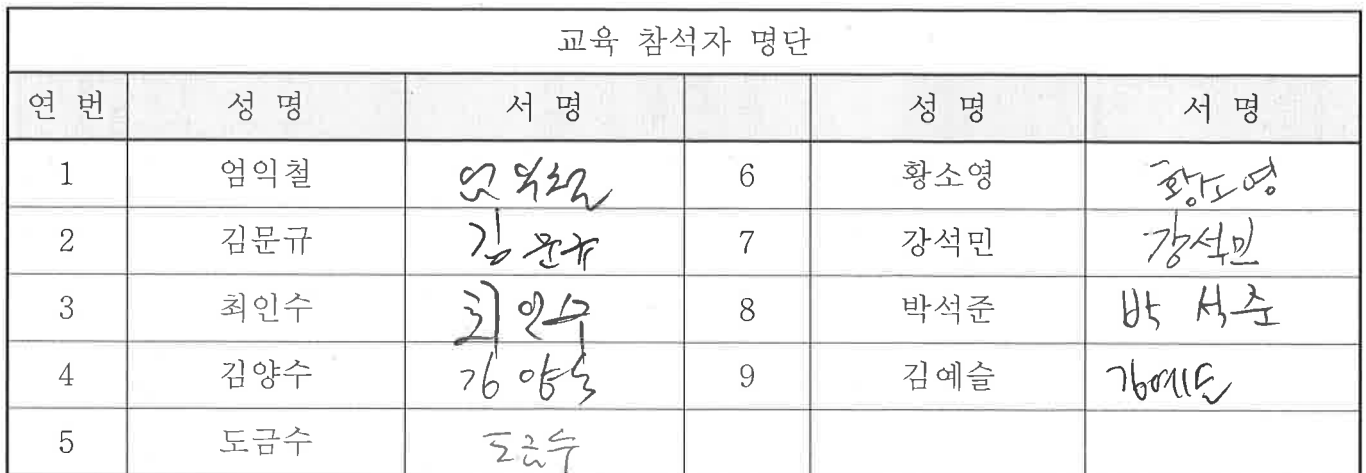 교육 참석자 명단
연 번 성 명 서 명 성 명 서 명
1 엄익철 엄익철 6 황소영 황소영
2 김문규 김문규 7 강석민 강석민
3 최인수 최인수 8 박석준 박석준
4 김양수 김양수 9 김예슬 김예슬
5 도금수 도금수